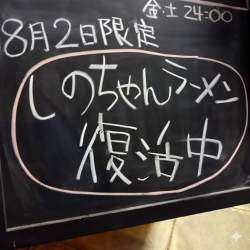 金・土24:00
8月2日限定
しのちゃんラーメン
復活中